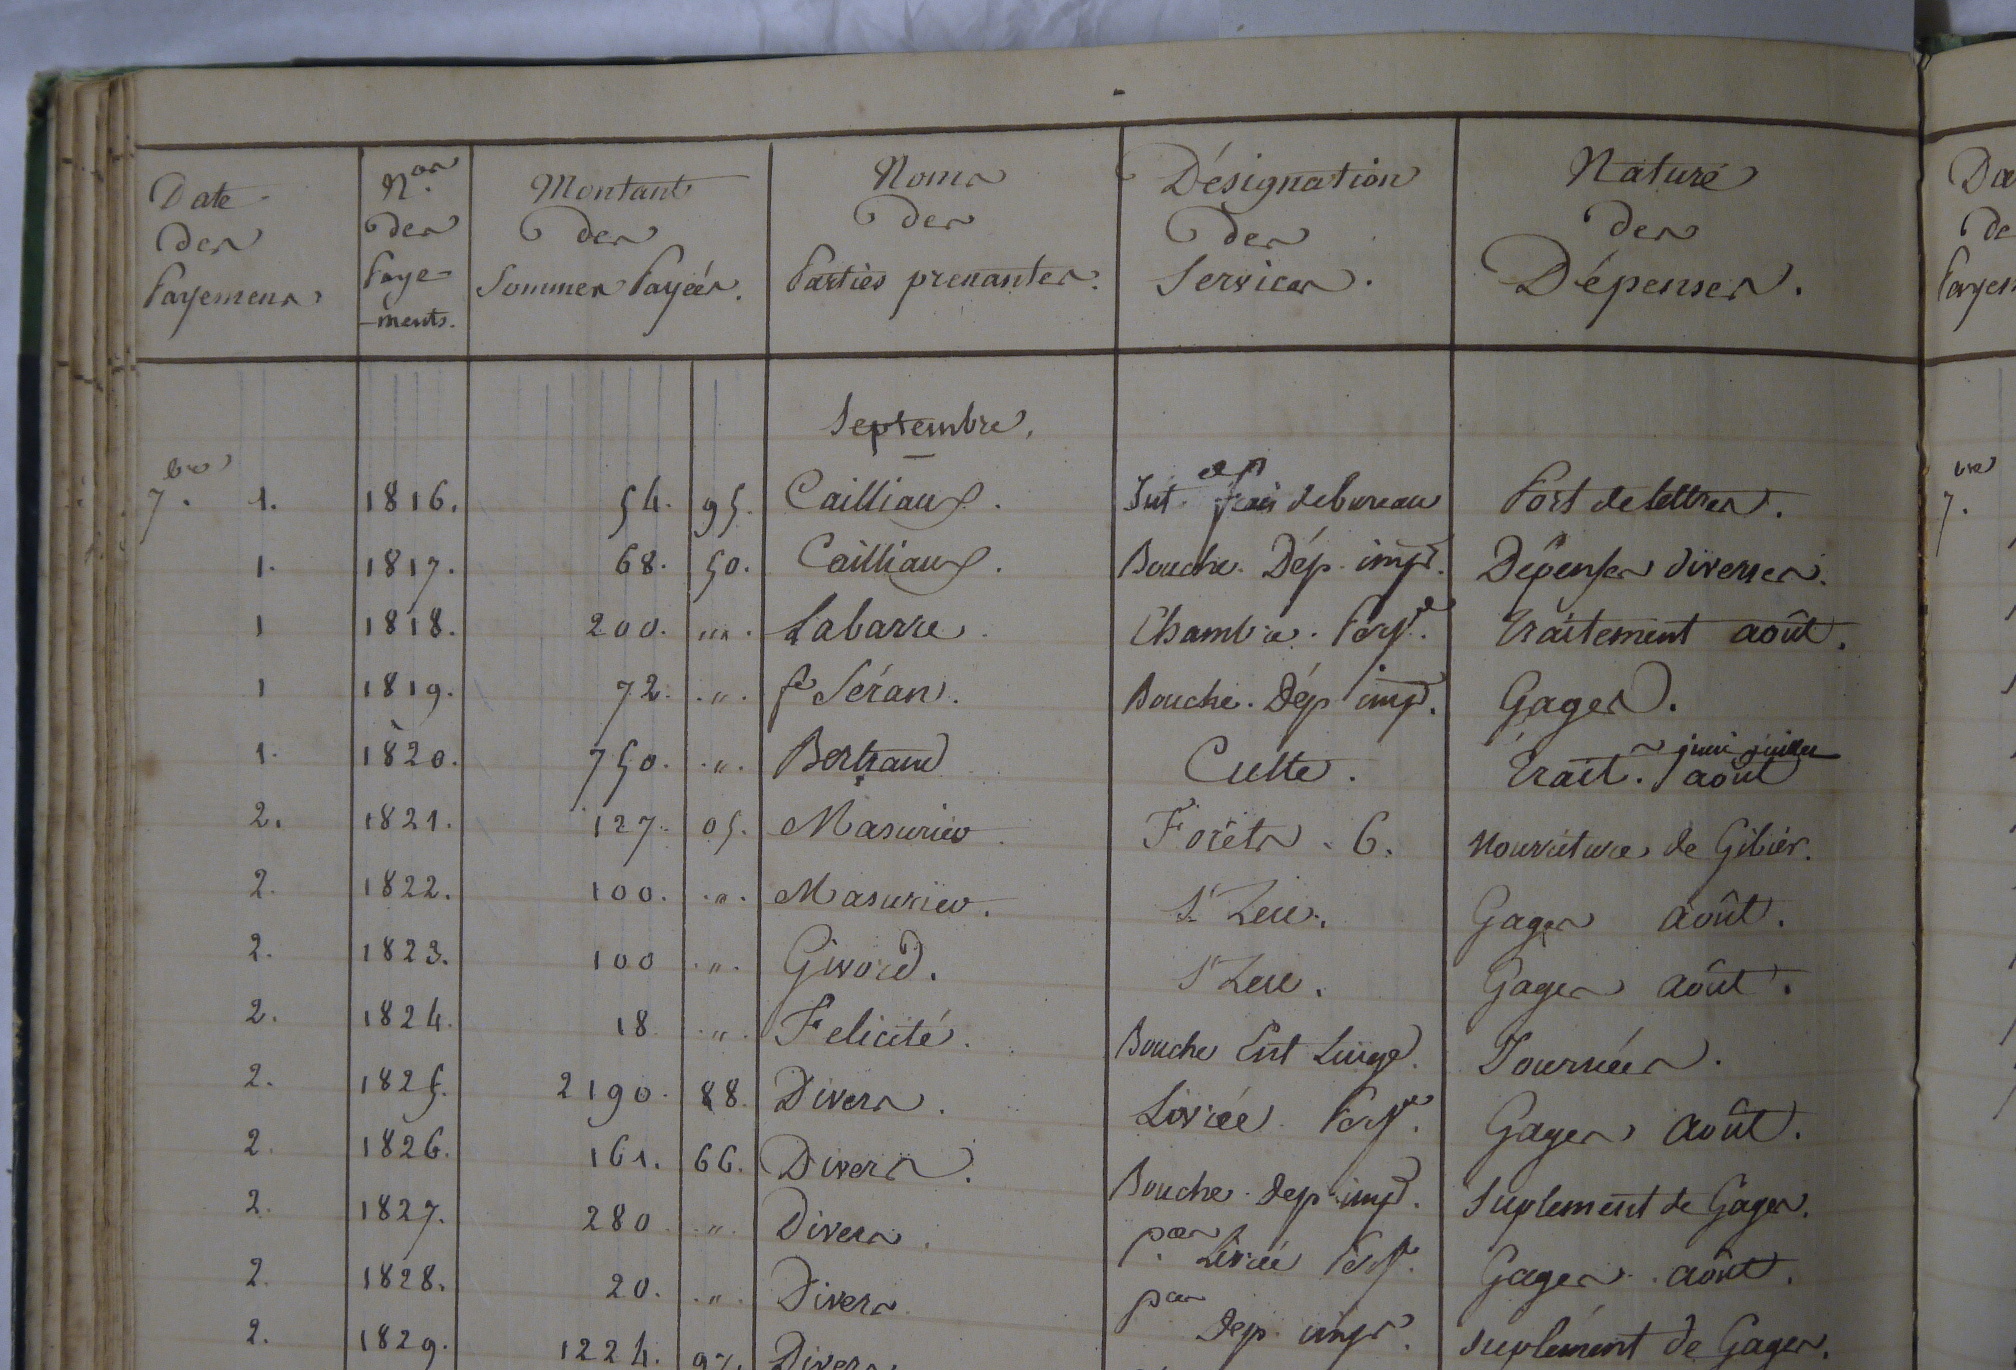 Date des Payemens
Nos des Paye-ments.
Montant des Sommes Payées.
Noms des Parties prenantes.
Désignation des Services.
Nature des Dépenses.
Septembre.
7.bre 1. 1816. 54. 95. Cailliaux. Int. frais de bureau Port de lettres.
1. 1817. 68. 50. Cailliaux. Bouche. Dép. impr. Dépenses diverses.
1 1818. 200. "". Labarre. Chambre. Persel. Traitement août.
1 1819. 72. ". f Séran. Bouche. Dép impr. Gages.
1. 1820. 750. ". Bertrand Culte. Trait. juin juillet août
2. 1821. 127. 05. Masurier Forêts. 6. Nourriture de Gibier.
2. 1822. 100. ". Masurier. St Leu. Gages août.
2. 1823. 100 ". Givord. St Leu. Gages août.
2. 1824. 18 ". Felicité. Bouche Ent Linge. Journées.
2. 1825. 2190. 88. Divers. Livrée Persel. Gages août.
2. 1826. 161. 66. Divers. Bouche. dep. impr. Suplement de Gages.
2. 1827. 280 ". Divers. Livrée Persel. Gages août.
2. 1828. 20. ". Divers Dep. impr. Suplément de Gages.
2. 1829. 1224. 97. Divers.
Da
de
Payem
7.bre